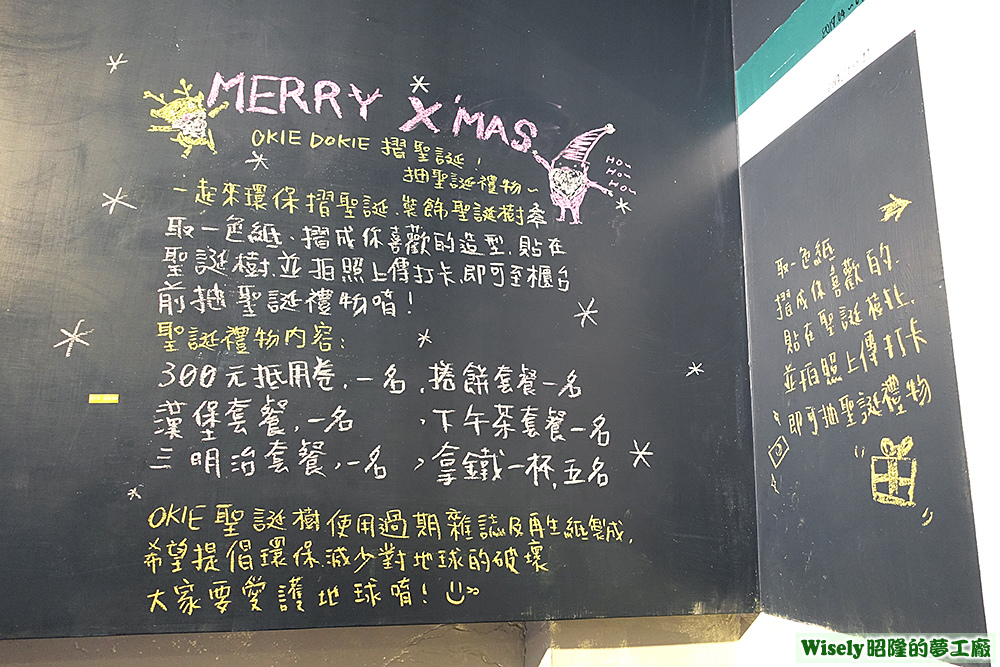 MERRY X'MAS
OKIE DOKIE 摺聖誕,
抽聖誕禮物~
Hou
Hou
Hou
一起來環保摺聖誕、裝飾聖誕樹
取一色紙、摺成你喜歡的造型、貼在
聖誕樹、並拍照上傳打卡、即可至櫃台
前抽聖誕禮物唷!
聖誕禮物內容:
300元抵用卷,一名,捲餅套餐一名
漢堡套餐,一名 ,下午茶套餐一名
三明治套餐,一名 ,拿鐵一杯,五名
OKIE聖誕樹使用過期雜誌及再生紙製成,
希望提倡環保減少對地球的破壞
大家要愛護地球唷!
取一色紙
摺成你喜歡的
貼在聖誕樹上,
並拍照上傳打卡
即可抽聖誕禮物
Wisely昭隆的夢工廠